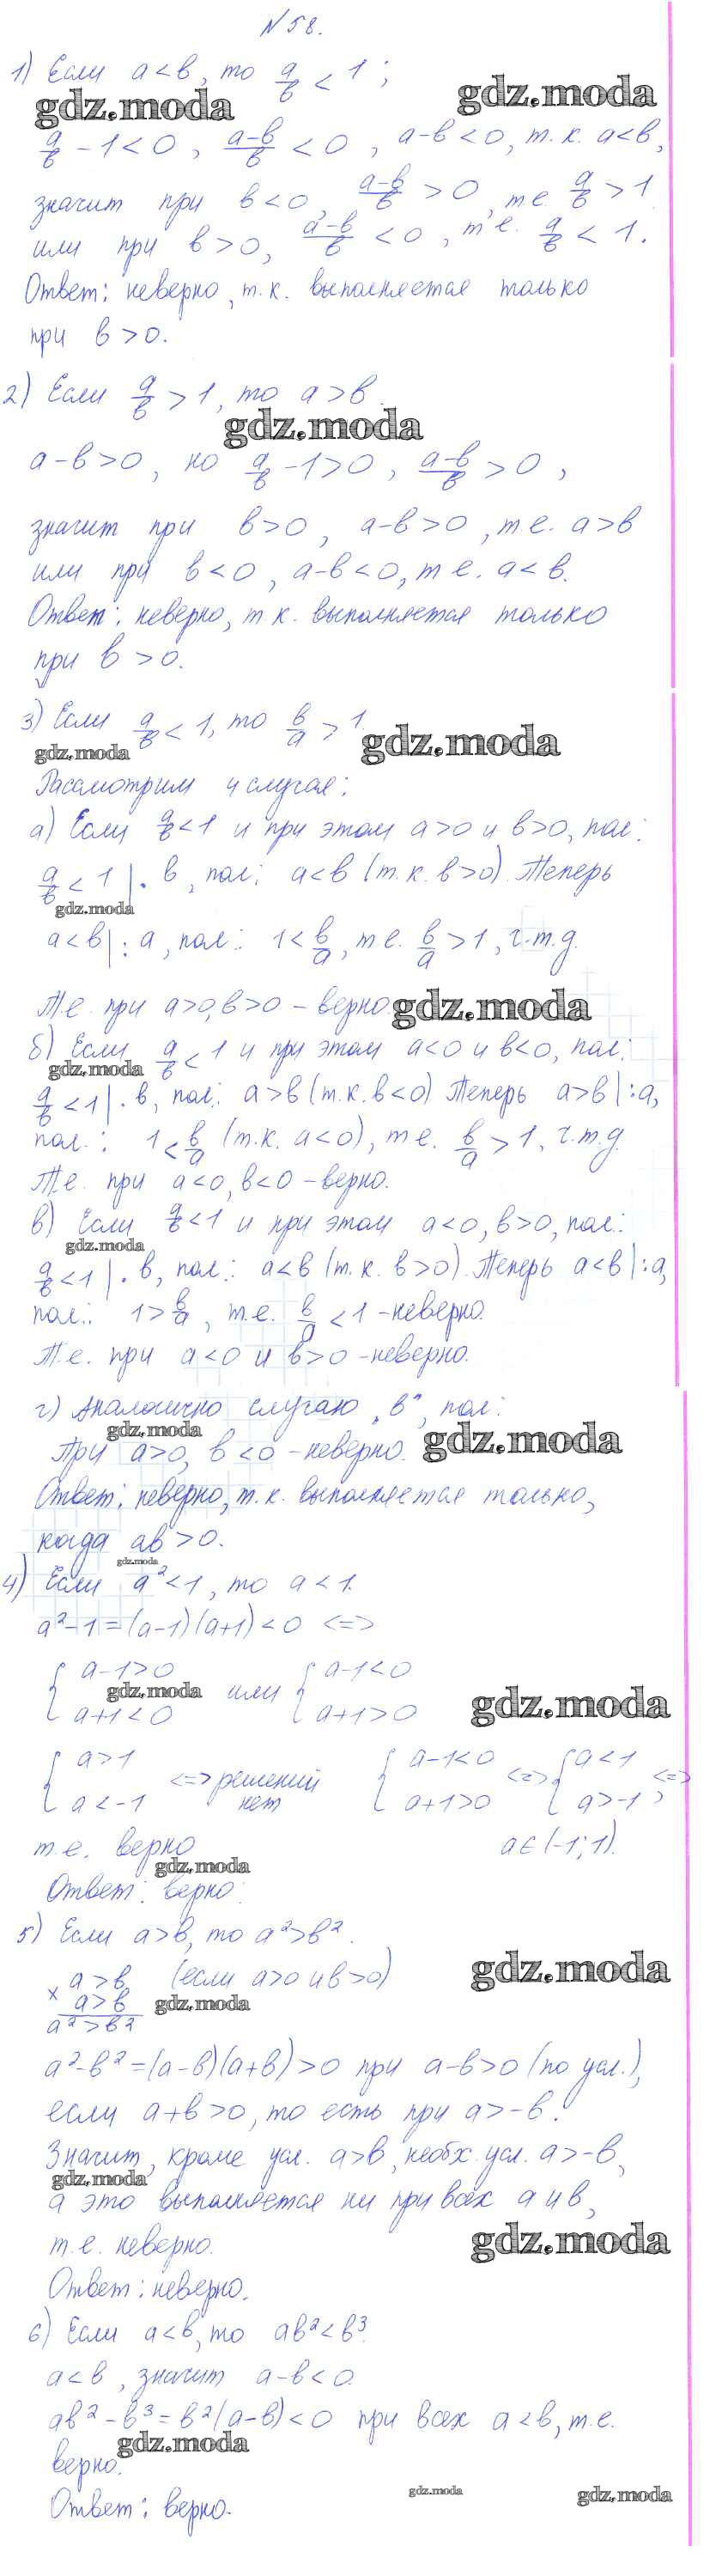 №58.
1) Если a<в, то a/в < 1;
gdz.moda gdz.moda
a/в - 1 < 0, (a-в)/в < 0, a-в<0, т.к. a<в,
значит при в<0, (a-в)/в > 0, т.е. a/в > 1
или при в>0, (a-в)/в < 0, т.е. a/в < 1.
Ответ: неверно, т.к. выполняется только
при в>0.
2) Если a/в > 1, то a>в.
gdz.moda
a-в>0, но a/в - 1>0, (a-в)/в > 0,
значит при в>0, a-в>0, т.е. a>в
или при в<0, a-в<0, т.е. a<в.
Ответ: неверно, т.к. выполняется только
при в>0.
3) Если a/в < 1, то в/a > 1.
gdz.moda gdz.moda
Рассмотрим 4 случая:
а) Если a/в<1 и при этом a>0 и в>0, пол:
a/в < 1 |· в, пол: a<в (т.к. в>0). Теперь
gdz.moda
a<в|: a, пол: 1< в/a, т.е. в/a >1, ч.т.д.
Т.е. при a>0, в>0 – верно. gdz.moda
б) Если a/в < 1 и при этом a<0 и в<0, пол:
gdz.moda
a/в <1|· в, пол: a>в (т.к. в<0) Теперь a>в|:a,
пол: 1 < в/a (т.к. a<0), т.е. в/a > 1, ч.т.д.
Т.е. при a<0, в<0 – верно.
в) Если a/в<1 и при этом a<0, в>0, пол:
gdz.moda
a/в<1|· в, пол: a<в (т.к. в>0). Теперь a<в|:a,
пол: 1> в/a, т.е. в/a <1 – неверно.
Т.е. при a<0 и в>0 – неверно.
г) Аналогично случаю „в", пол:
gdz.moda
При a>0, в<0 – неверно. gdz.moda
Ответ: неверно, т.к. выполняется только,
когда aв>0.
gdz.moda
4) Если a²<1, то a<1.
a²-1=(a-1)(a+1)<0 <=>
{ a-1>0 или { a-1<0
gdz.moda gdz.moda
a+1<0 a+1>0
{ a>1 <=> решений { a-1<0 <=> { a<1 <=>
a<-1 нет a+1>0 a>-1,
т.е. верно a∈(-1;1).
gdz.moda
Ответ: верно.
5) Если a>в, то a²>в².
× a>в (если a>0 и в>0) gdz.moda
a>в gdz.moda
a²>в²
a²-в²=(a-в)(a+в)>0 при a-в>0 (по усл.),
если a+в>0, то есть при a>-в.
Значит, кроме усл. a>в, необх. усл. a>-в,
gdz.moda
а это выполняется ни при всех a и в,
т.е. неверно. gdz.moda
Ответ: неверно.
6) Если a<в, то aв²<в³.
a<в, значит a-в<0.
aв²-в³=в²(a-в)<0 при всех a<в, т.е.
gdz.moda
верно.
gdz.moda gdz.moda
Ответ: верно.